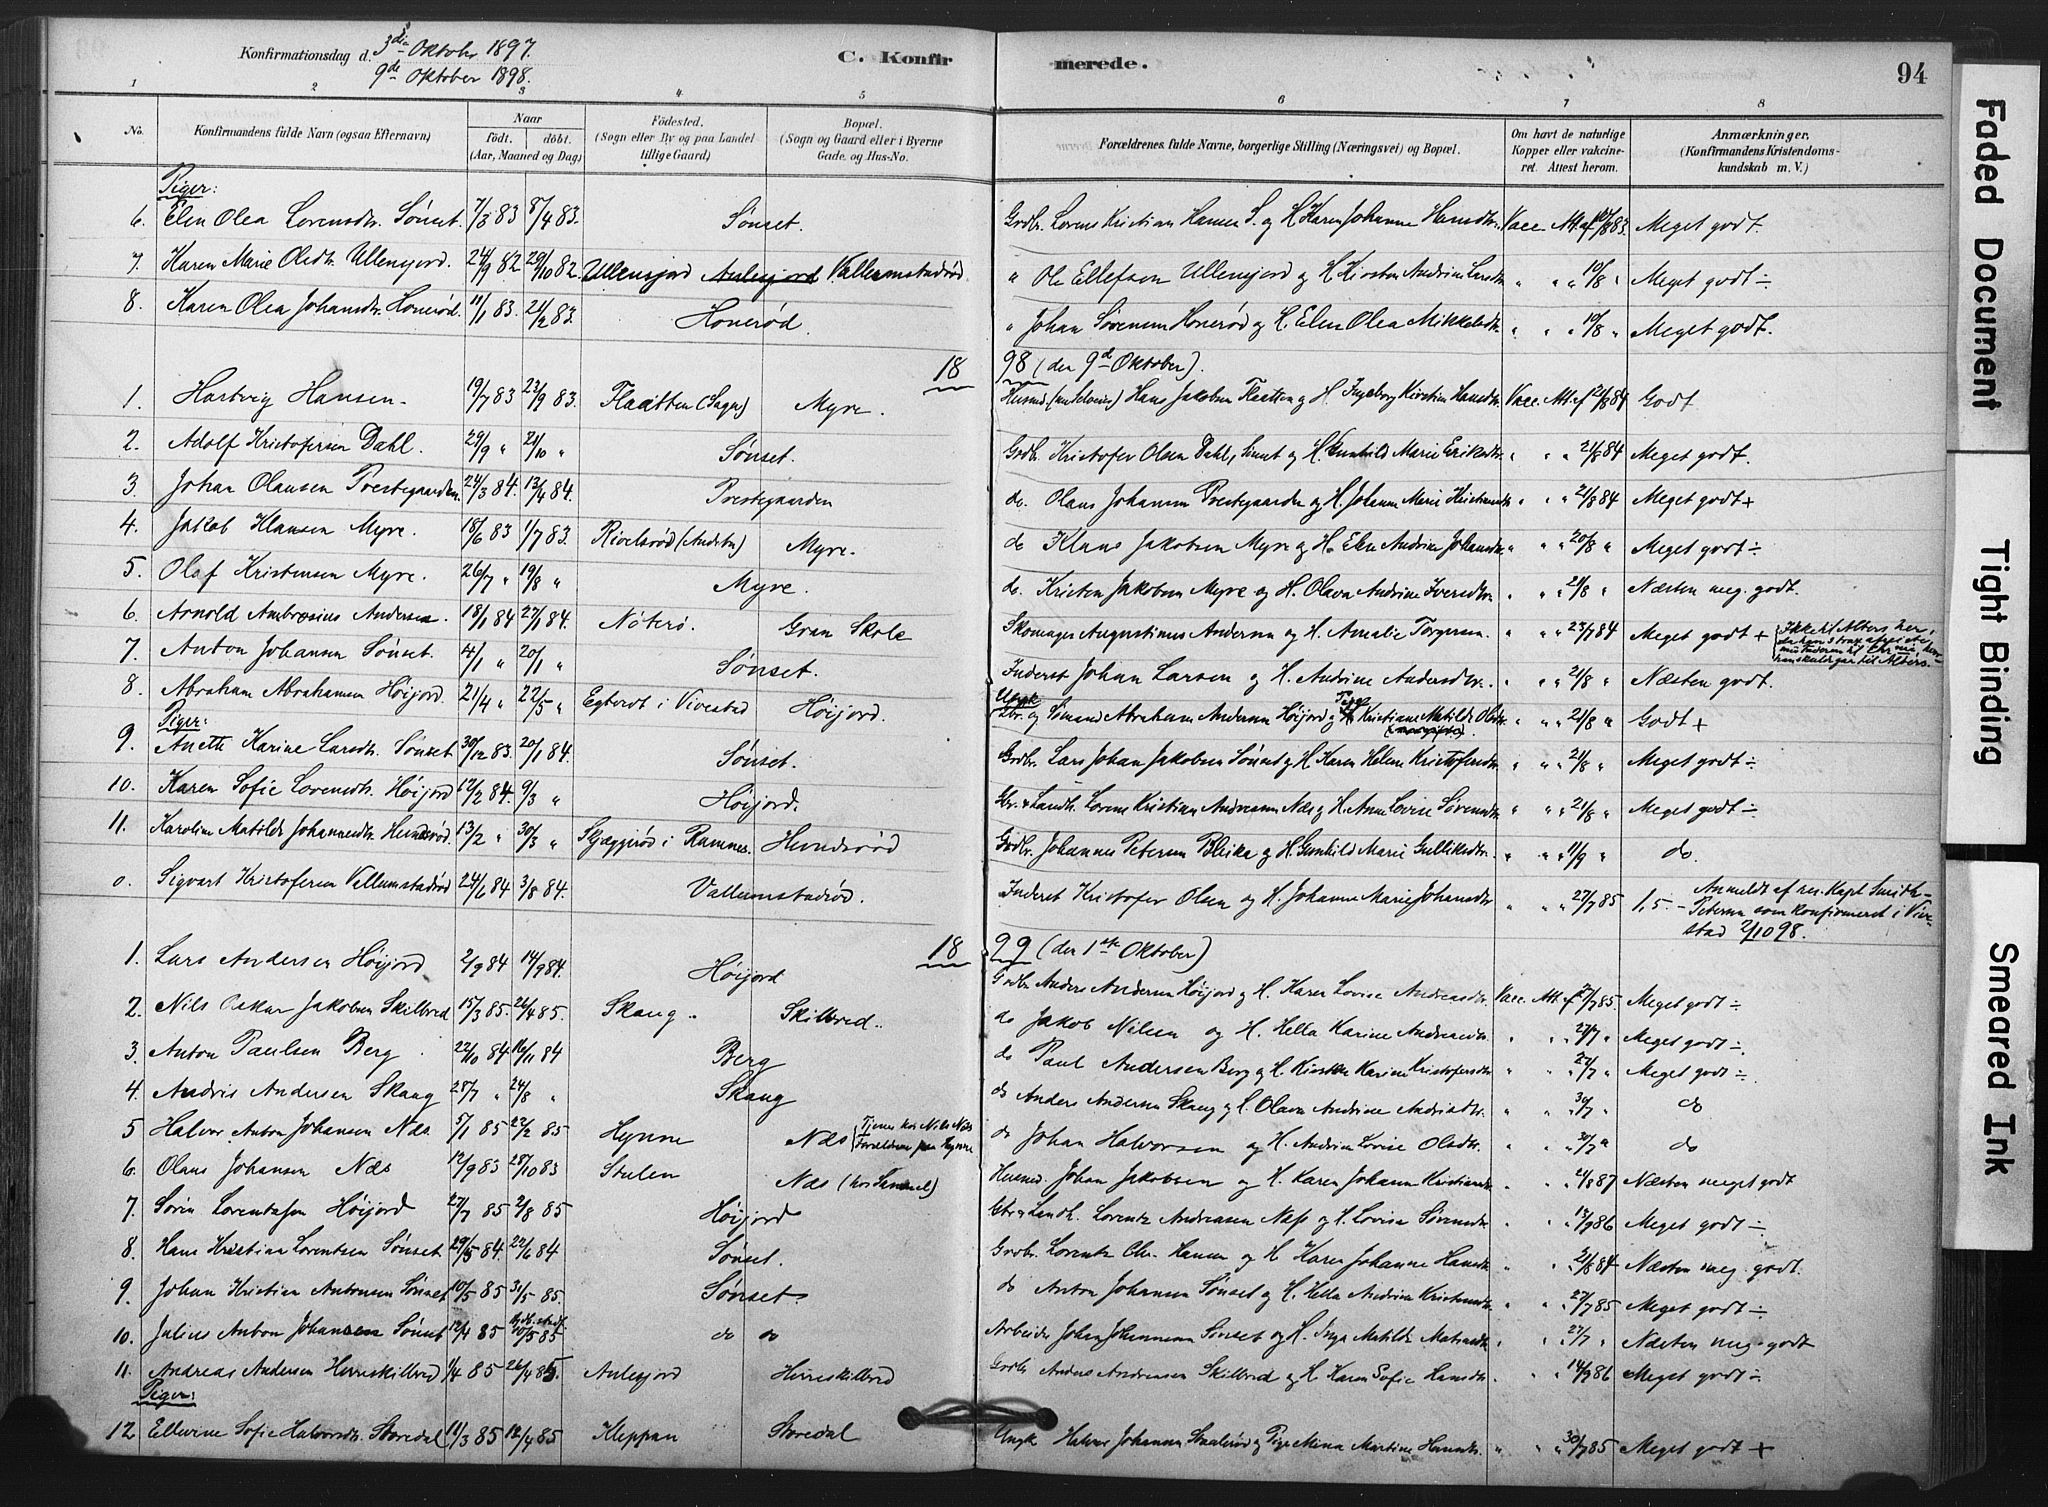 Konfirmationsdag d. 3die Oktober 1897.
9de Oktober 1898.
C. Konfirmerede.
94
1 2 3 4 5 6 7 8
No.
Konfirmandens fulde Navn (ogsaa Efternavn)
Naar
født. døbt.
(Aar, Maaned og Dag)
Fødested.
(Sogn eller By og paa Landet
tillige Gaard)
Bopæl.
(Sogn og Gaard eller i Byerne
Gade. og Hus-No.
Forældrenes fulde Navne, borgerlige Stilling (Næringsvei) og Bopæl.
Om havt de naturlige
Kopper eller vakcine-
ret. Attest herom.
Anmærkninger.
(Konfirmandens Kristendoms-
kundskab m. V.)
Piger:
6. Elen Olea Lorensdtr. Sønset. 7/3 83 8/4 83. Sønset. Grdbr. Lorens Kristian Hansen S. og H. Karen Johanne Hansdtr. Vacc. Att. af 83. Meget godt.
7. Karen Marie Olsdtr. Ullensjord. 24/9 82 29/10 82. Ullensjord Aulesjord Vallumstadrød. " Ole Ellefsen Ullensjord og H. Kirsten Andrine Larsdtr. " " " 10/8 " Meget godt ÷
8. Karen Olea Johansdtr. Honerød. 11/1 83. 24/2 83. Honerød. " Johan Sørensen Honerød og H. Elen Olea Mikkelsdtr. " " " 10/8 " Meget godt.
1898 (den 9d Oktober).
1. Hartvig Hansen. 19/7 83 23/9 83. Flaatten (Sogn) Myre. Husmd. Hans Jakobsen Flaatten og H. Ingeborg Kirstine Hansdtr. Vacc. Att. af 21/8 84 Godt
2. Adolf Kristofersen Dahl. 29/9 " 21/10 " Sønset. Grdbr. Kristofer Olsen Dahl, Sønset og H. Gunhild Marie Eriksdtr. " " " 21/8 84 Meget godt.
3. Johan Olausen Prestegaarden. 24/3 84. 13/4 84. Prestegaarden do. Olaus Johansen Prestegaarden og H. Johanne Marie Kristensdtr. " " " 21/8 84 Meget godt +
4. Jakob Klausen Myre. 18/6 83 1/7 83. Rivelsrød (Andebu) Myre. do Klaus Jakobsen Myre og H. Elen Andrine Johansdtr. " " " 20/8 " Meget godt ÷
5. Olaf Kristensen Myre. 26/7 " 19/8 " Myre. do. Kristen Jakobsen Myre og H. Olava Andrine Iversdtr. " " " 21/8 " Næsten meg. godt.
6. Arnold Ambrosius Andersen. 18/1 84 27/1 84. Nøterø. Gran Skole Skomager Augustinus Andersen og H. Amalie Torgersen. " " " 23/7 84 Meget godt + Ikke til Alters her,
7. Anton Johansen Sønset. 4/1 " 20/1 " Sønset. Inderst Johan Larsen og H. Andrine Andersdtr. " " " 21/8 " Næsten godt.
8. Abraham Abrahamsen Høijord. 21/4 " 22/5 " Egtvedt i Vivestad Høijord. Ungk. Abraham Andersen Høijord og Pige Kristiane Matilde Olsdtr. " " " 21/8 " Godt +
Piger:
9. Anette Karine Larsdtr. Sønset 30/12 83. 20/1 84. Sønset. Grdbr. Lars Johan Jakobsen Sønset og H. Karen Helene Kristofersdtr. " " " 21/8 " Meget godt ÷
10. Karen Sofie Lorensdtr. Høijord 12/2 84. 9/3 " Høijord. Gbr. & Landh. Lorens Kristian Andreassen Næs og H. Anne Lovise Sørensdtr. " " " 21/8 " Meget godt ÷
11. Karoline Matilde Johannesdtr. Hundsrød. 13/2 " 30/3 " Skjæggerød i Ramnes. Hundsrød Grdbr. Johannes Petersen Bleika og H. Gunhild Marie Gulliksdtr. " " " 11/9 " do.
0. Sigvart Kristofersen Vallumstadrød 24/6 84 3/8 84. Vallumstadrød. Inderst Kristofer Olsen og H. Johanne Marie Johansdtr. " " " 27/7 85 1,5. Anmeldt af res. Kapl. Smidth-
Petersen som konfirmeret i Vive-
stad 2/10 98.
1899 (den 1ste Oktober)
1. Lars Andersen Høijord 2/9 84 14/9 84. Høijord Grdbr. Anders Andersen Høijord og H. Karen Lovise Andreasdtr. Vacc. Att. af 27/7 85. Meget godt ÷
2. Nils Oskar Jakobsen Skilbred 15/3 85. 26/4 85. Skaug. Skilbred. do Jakob Nilsen og H. Hella Karine Andreasdtr. " " 27/7 " Meget godt ÷.
3. Anton Paulsen Berg 22/10 84 16/11 84 Berg do Paul Andersen Berg og H. Kirsten Karine Kristofersdtr. " " 27/7 " Meget godt ÷.
4. Andris Andersen Skaug 28/7 " 24/8 " Skaug do Anders Andersen Skaug og H. Olava Andrine Andrisdtr. " " 30/7 " do
5 Halvor Anton Johansen Næs. 5/1 85 22/2 85 Hynne Næs (Tjener hos Nils Næs Forældrene paa Hynne do Johan Halvorsen og H. Andrine Lovise Olsdtr. " " 30/7 " do
6. Olaus Johansen Næs 12/9 83 28/10 83 Stulen Næs (hos Samuel) Husmd. Johan Jakobsen og H. Karen Johanne Kristiansdtr. " " 21/8 87 Næsten meget godt
7. Søren Lorentzsen Høijord 27/7 85 2/8 85 Høijord Gbr & Landh. Lorentz Andreasen Næss og H. Lovise Sørensdtr. " " 13/9 86 Meget godt ÷
8. Hans Kristian Lorentsen Sønset 29/5 84. 22/6 84 Sønset. Grdbr. Lorentz Chr. Hansen og H. Karen Johanne Hansdtr. " " 21/8 84 Næsten meg. godt.
9. Johan Kristian Antonsen Sønset 10/5 85 31/5 85. Sønset. do Anton Johansen Sønset og H. Hella Andrine Kristensdtr. " " 27/7 85 Meget godt ÷
10. Julius Anton Johansen Sønset 12/4 85 10/5 85 do do Arbeider Johan Johannessen Sønset og H. Inga Matilde Matisdtr. " " 27/7 " Næsten meg. godt
11. Andreas Andersen Herreskilbred 1/4 85 26/4 85. Aulesjord Herreskilbred Grdbr Anders Andreasen Skilbred og H. Karen Sofie Hansdtr. " " 14/9 86 Meget godt ÷
Piger:
12. Ellevine Sofie Halvorsdtr. Storedal 11/3 85 12/4 85 Kleppan Storedal Ungk Halvor Johannsen og Pige Mina Martine Hansdtr. " " 30/7 85 Meget godt +
Faded Document
Tight Binding
Smeared Ink